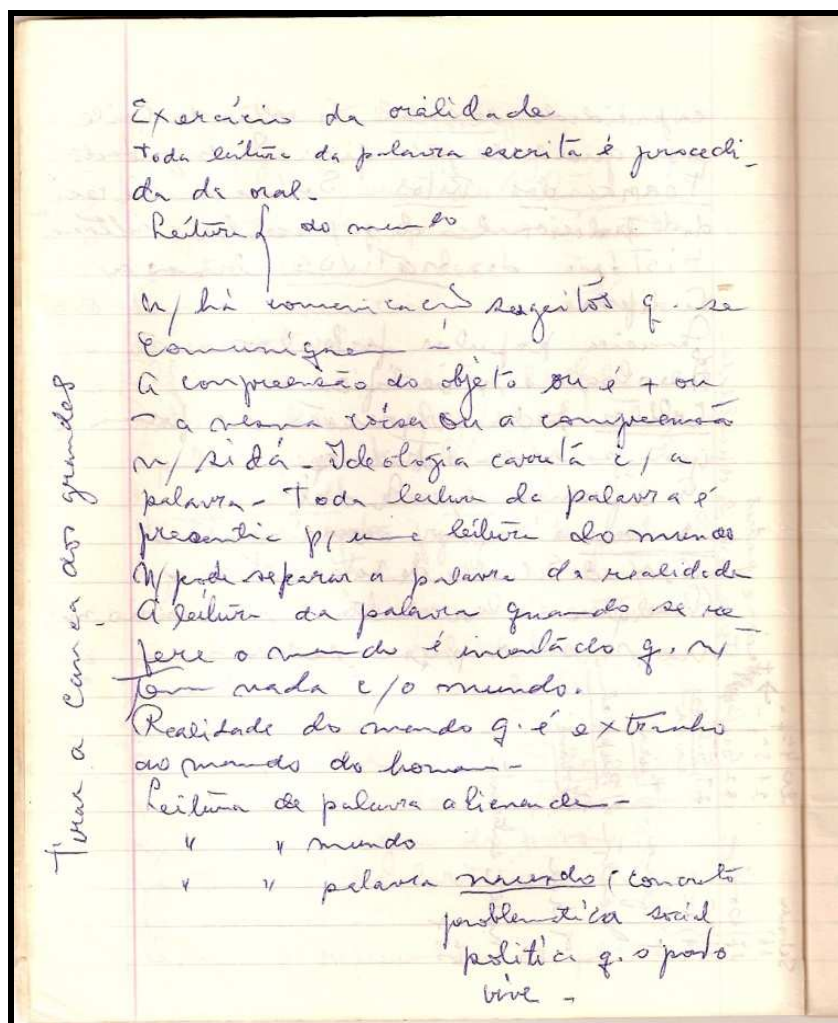 Exercício da oralidade
Toda leitura da palavra escrita é precedi_
da da oral.
Leitura do mundo
n/ há comunicação sugeitos q. se
comuniquem
A compreensão do objeto ou é + ou
- a mesma coisa ou a compreensão
n/ si dá - Ideologia c/ a
palavra - Toda leitura da palavra é
p/ uma leitura do mundo
N/ pode separar a palavra da realidade
A leitura da palavra quando se re
fere o mundo é q. n/
tem nada c/ o mundo.
Realidade do mundo q. é extranho
ao mundo do homem -
Leitura da palavra alienande -
" " mundo
" " palavra mundo (concreto
problemática social
política q. o povo
vive -
Tirar a dos grandes